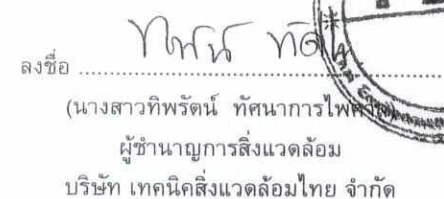 ลงชื่อ
(นางสาวทิพรัตน์ ทัศนาการไพศาล)
ผู้ชำนาญการสิ่งแวดล้อม
บริษัท เทคนิคสิ่งแวดล้อมไทย จำกัด